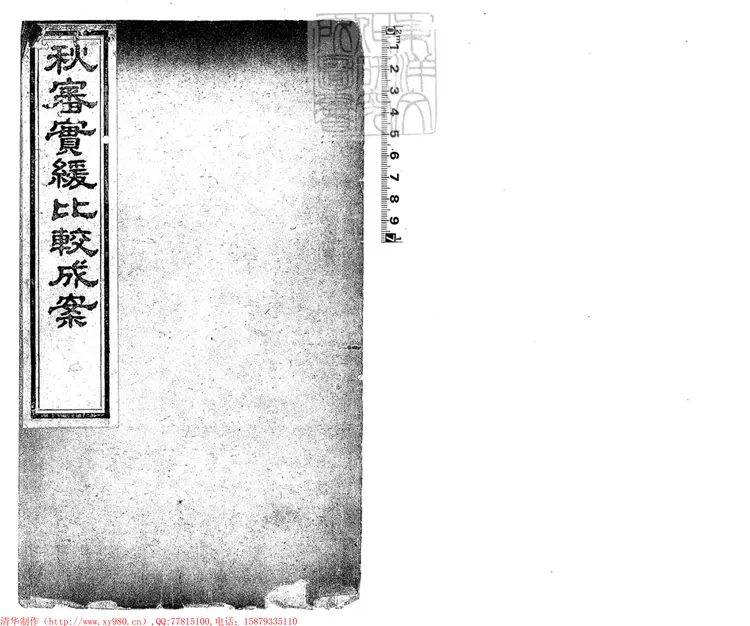 秋審實緩比較成案
東洋文
化研究
所圖書
2m
0 1 2 3 4 5 6 7 8 9
清华制作（http://www.xy980.cn）,QQ:77815100,电话：15879335110